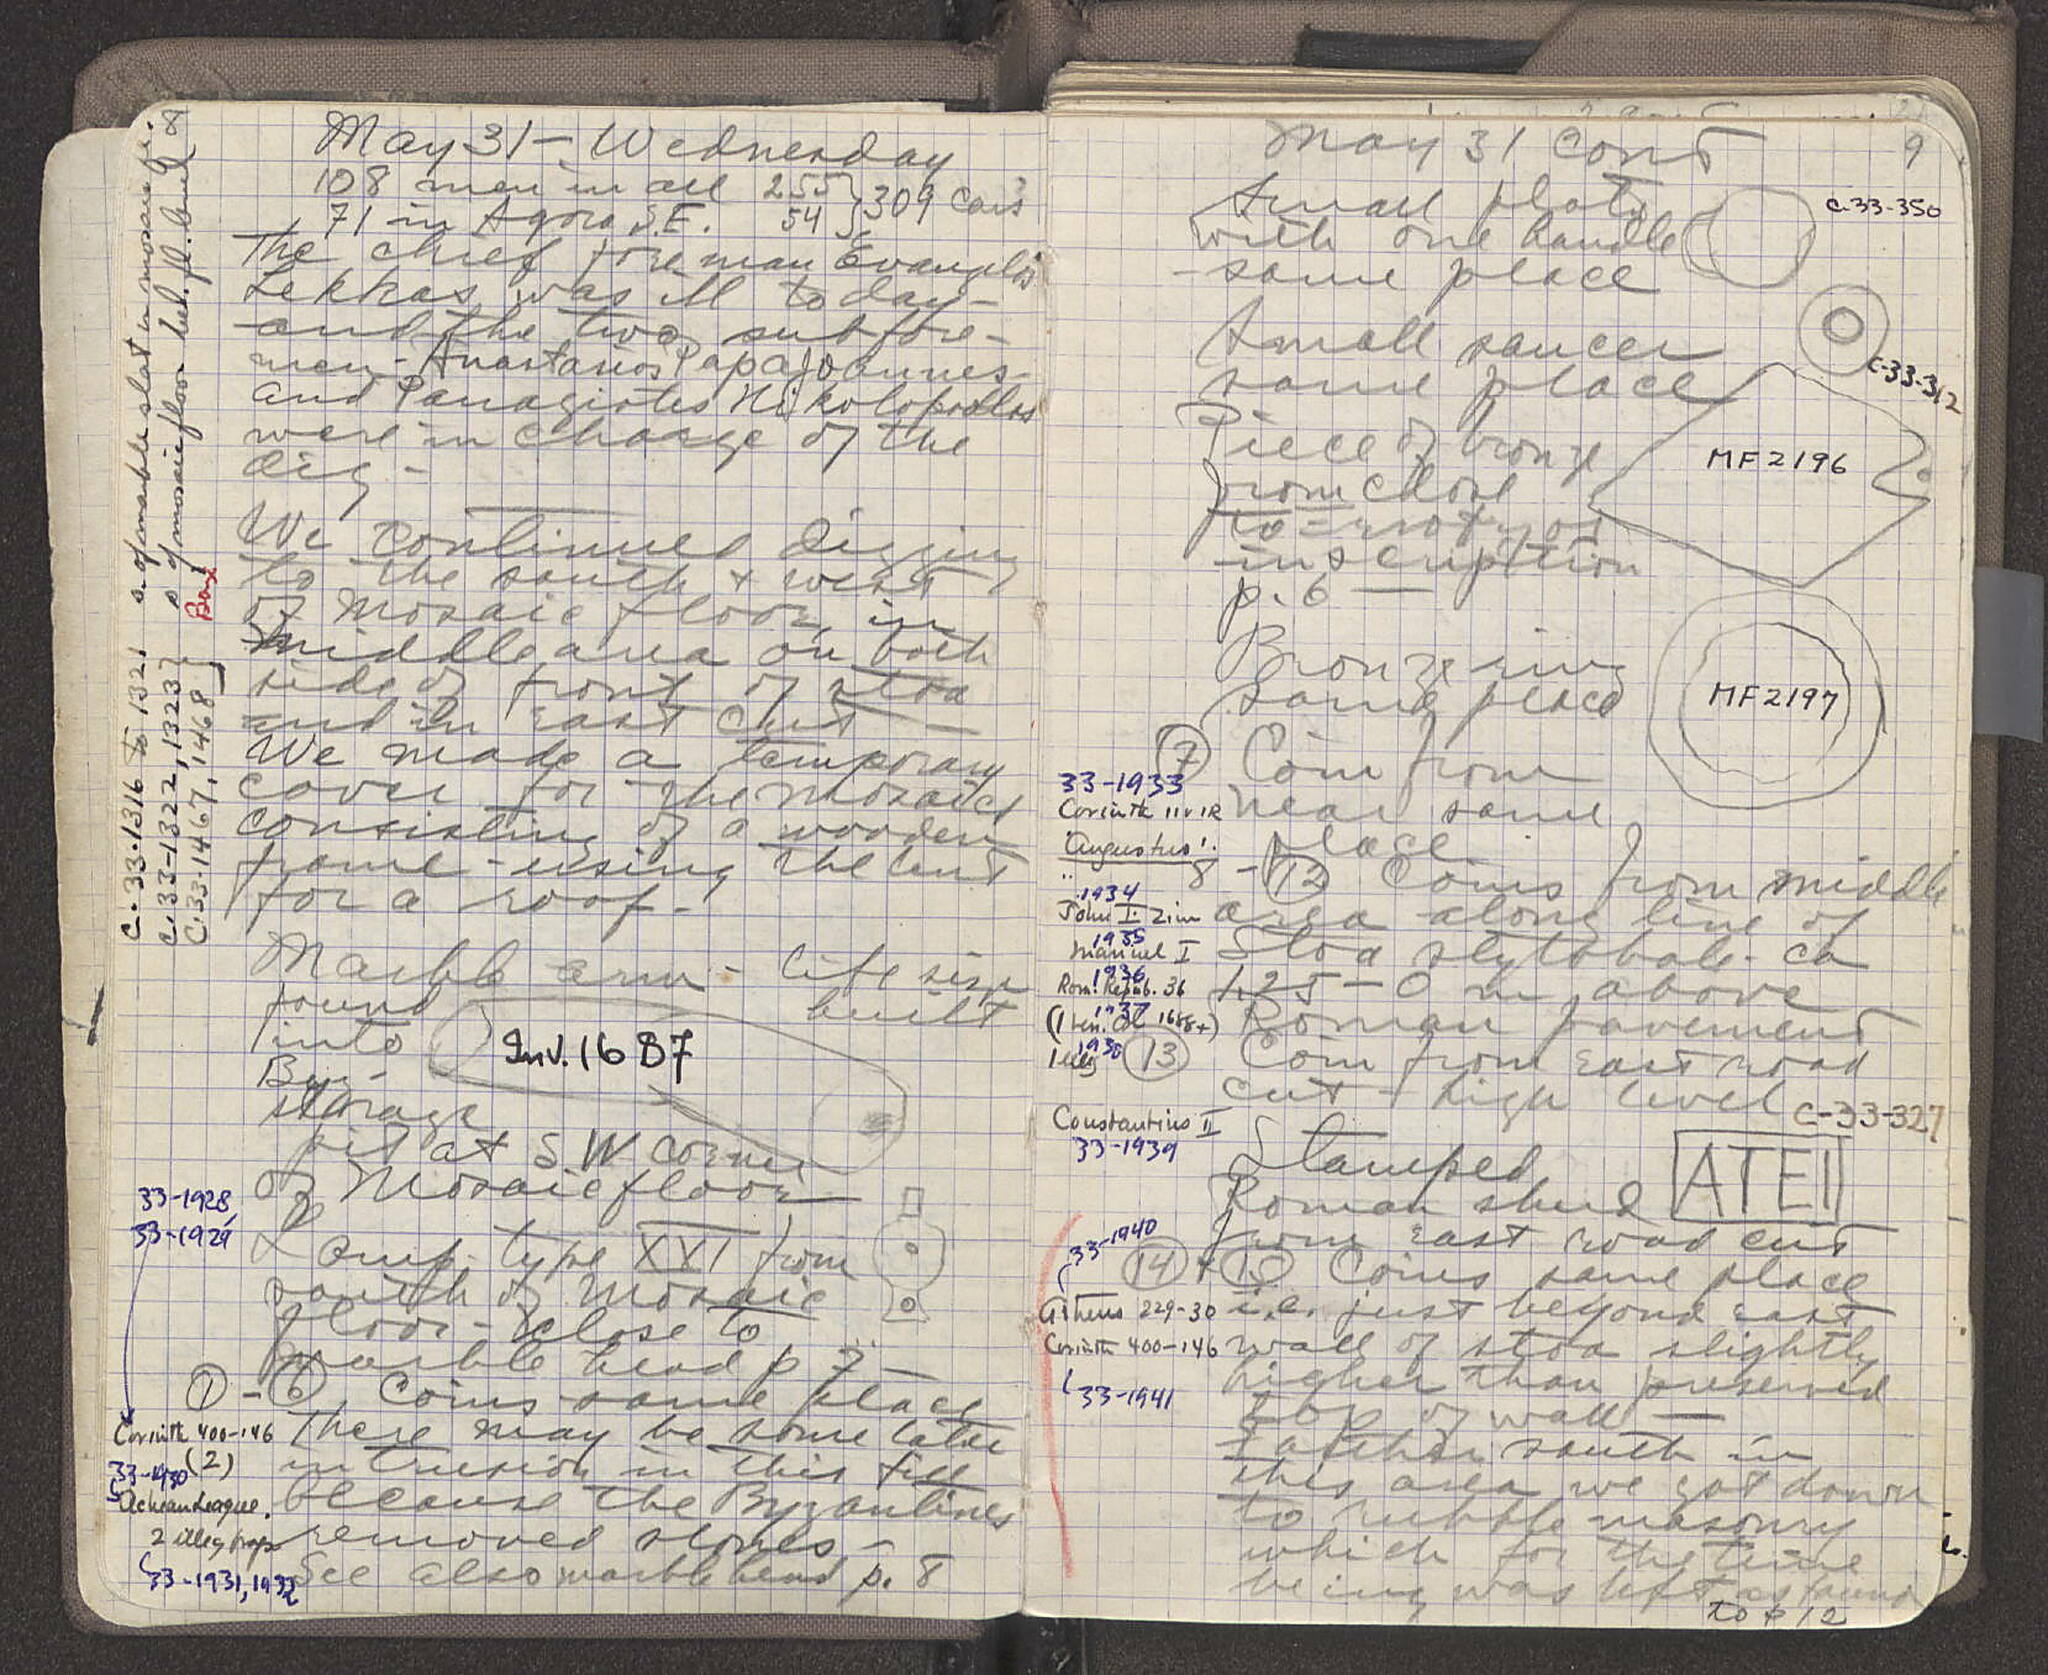 May 31 - Wednesday
108 men in all 255 } 309 cars
71 in Agora S.E. 54
The chief foreman Evangelos
Lekkas was ill today -
and the two subfore-
men - Anastasios Papajoannes
and Panagiotes Nikolopoulos
were in charge of the
dig -
We continued digging
to the south & west
of Mosaic floor, in
middle area on both
side of front of stoa
and in east cut -
We made a temporary
cover for the mosaic
consisting of a wooden
frame - using the tent
for a roof -
Marble arm - life size
found built
into Inv. 1687
Byz-
storage
pit at S.W corner
of Mosaic floor
Lamp - type XXI from
south of Mosaic
floor - close to
marble head p 7 -
① - ⑥ Coins same place
There may be some later
intrusion in this fill
because the Byzantines
removed stones -
See also marble head p. 8
33-1928,
33-1929
Corinth 400-146
(2)
33-1930
Achean League.
2 illeg frags
33-1931, 1932
C-33-1316 to 1321 s. of marble slab in mosaic fl.
C-33-1322, 1323 } s of mosaic floor hel. fl. level
C-33-1467, 1468 } Box
8
May 31 cont 9
Small plate C-33-350
with one handle
- same place
Small saucer
same place C-33-312
Piece of bronze MF 2196
from close
to
inscription
p. 6 -
Bronze ring
same place MF 2197
⑦ Coin from
near same
place
8 - ⑫ Coins from middle
area along line of
Stoa stylobate - ca
1.25 - 0 m above
Roman pavement
⑬ Coin from east road
cut - high level C-33-327
Stamped ATEII
Roman sherd
from east road cut
⑭ + ⑮ Coins same place
i.e. just beyond east
wall of stoa slightly
higher than preserved
top of wall -
Farther south in
this area we got down
to rubble masonry
which for the time
being was left as found
to p 12
33-1933
Corinth II VIR
Augustus
1934
John I. Zim
1935
Manuel I
1936
Rom. Repub. 36
1937
(1 Ven. Col 1688+)
1938
1 illeg
Constantius II
33-1939
33-1940
Athens 229-30
Corinth 400-146
33-1941